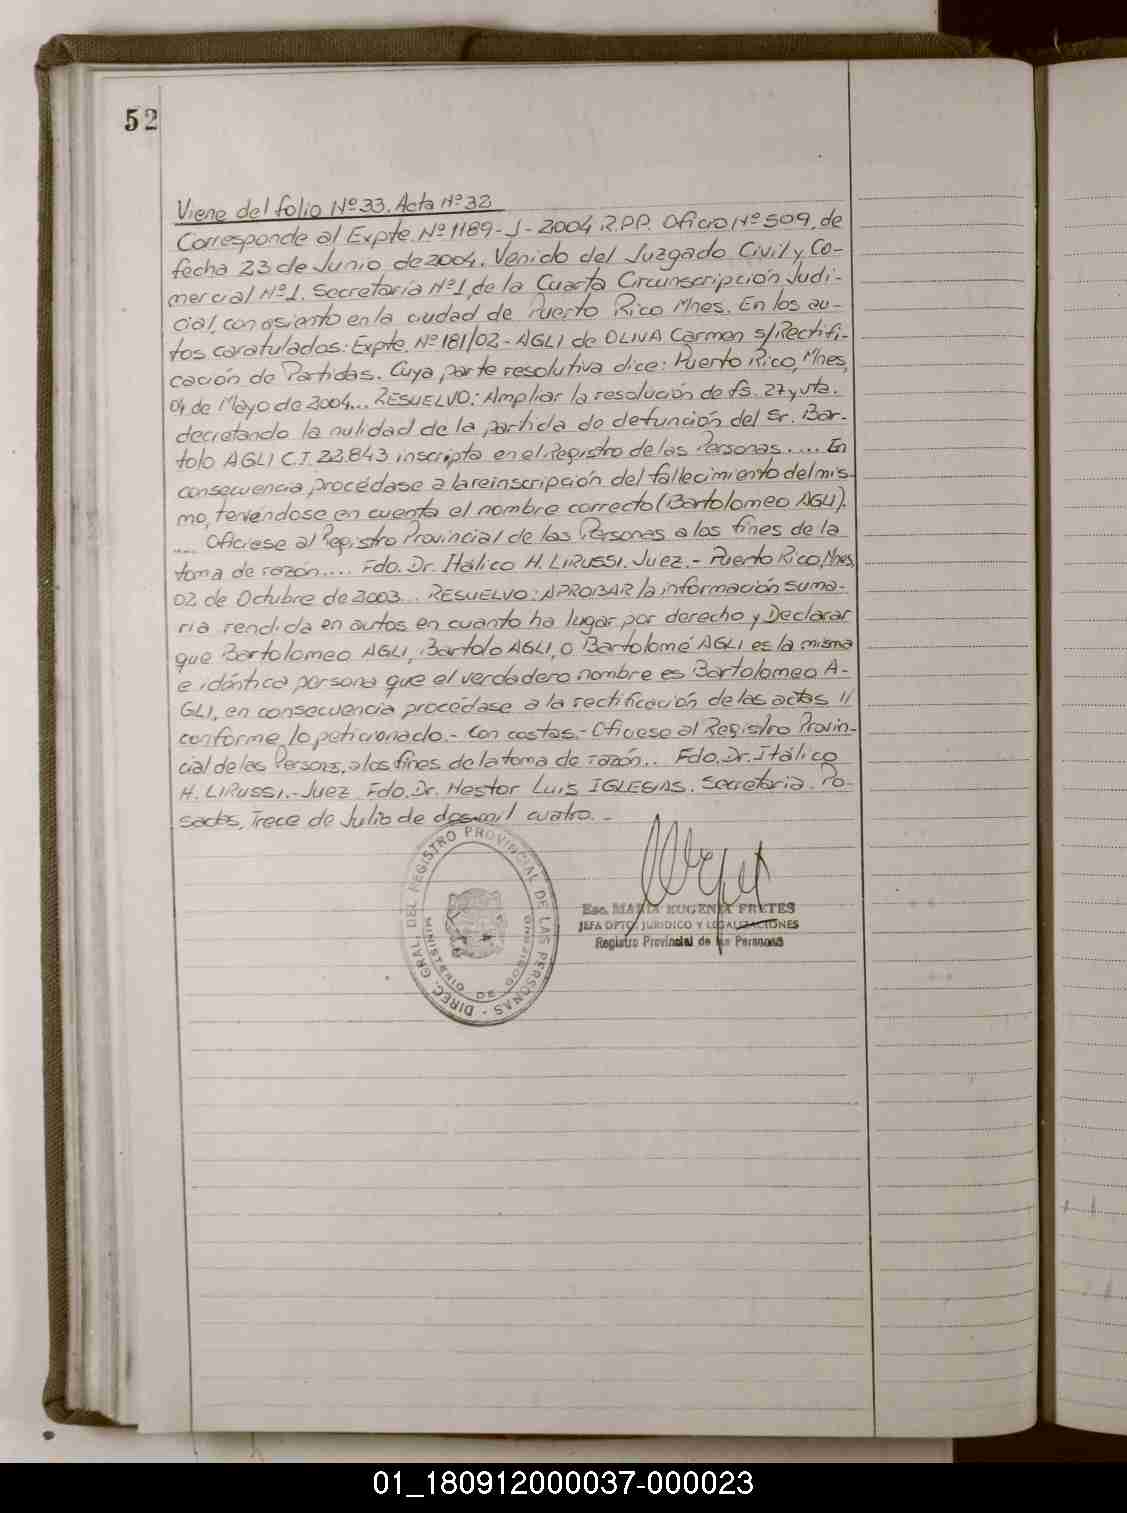 52
Viene del folio Nº 33. Acta Nº 32
Corresponde al Expte. Nº 1189-J-2004 R.P.P. Oficio Nº 509, de
fecha 23 de Junio de 2004. Venido del Juzgado Civil y Co-
mercial Nº 1. Secretaría Nº 1, de la Cuarta Circunscripción Judi-
cial, con asiento en la ciudad de Puerto Rico Mnes. En los au-
tos caratulados: Expte. Nº 181/02 - AGLI de OLIVA Carmen s/Rectifi-
cación de Partidas. Cuya parte resolutiva dice: Puerto Rico, Mnes,
04 de Mayo de 2004... RESUELVO: Ampliar la resolución de fs. 27 y vta.
decretando la nulidad de la partida de defunción del Sr. Bar-
tolo AGLI C.I. 22.843 inscripta en el Registro de las Personas .... En
consecuencia procédase a la reinscripción del fallecimiento del mis-
mo, teniéndose en cuenta el nombre correcto (Bartolomeo AGLI).
.... Ofíciese al Registro Provincial de las Personas a los fines de la
toma de razón.... Fdo. Dr. Itálico H. LIRUSSI. Juez.- Puerto Rico, Mnes,
02 de Octubre de 2003... RESUELVO: APROBAR la información suma-
ria rendida en autos en cuanto ha lugar por derecho y Declarar
que Bartolomeo AGLI, Bartolo AGLI, o Bartolomé AGLI es la misma
e idéntica persona que el verdadero nombre es Bartolomeo A-
GLI, en consecuencia procédase a la rectificación de las actas //
conforme lo peticionado.- Con costas.- Ofíciese al Registro Provin-
cial de las Persons. a los fines de la toma de razón... Fdo. Dr. Itálico
H. LIRUSSI.- Juez Fdo. Dr. Hestor Luis IGLESIAS. Secretaria. Po-
sadas, Trece de Julio de dos mil cuatro.-
DIREC. GRAL. DEL REGISTRO PROVINCIAL DE LAS PERSONAS -
MINISTERIO DE GOBIERNO
Esc. MARIA EUGENIA FRETES
JEFA DPTO. JURIDICO Y LEGALIZACIONES
Registro Provincial de las Personas
01_180912000037-000023